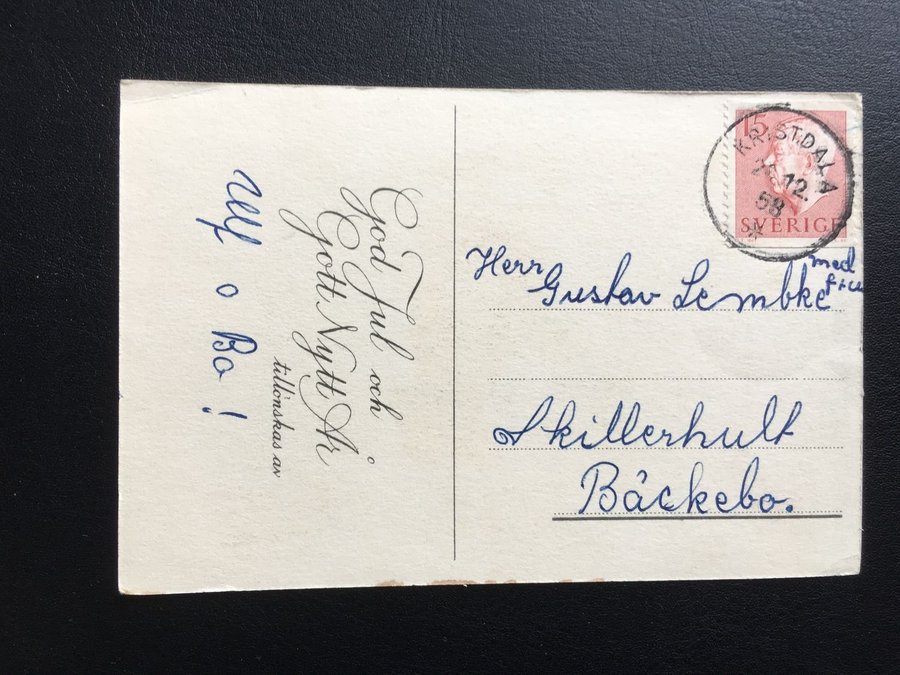 God Jul och
Gott Nytt År
tillönskas av
Ulf o Bo!
15
SVERIGE
KRISTDALA
12.
58
Herr
Gustav Lembke
med
fru
Skillerhult
Bäckebo.